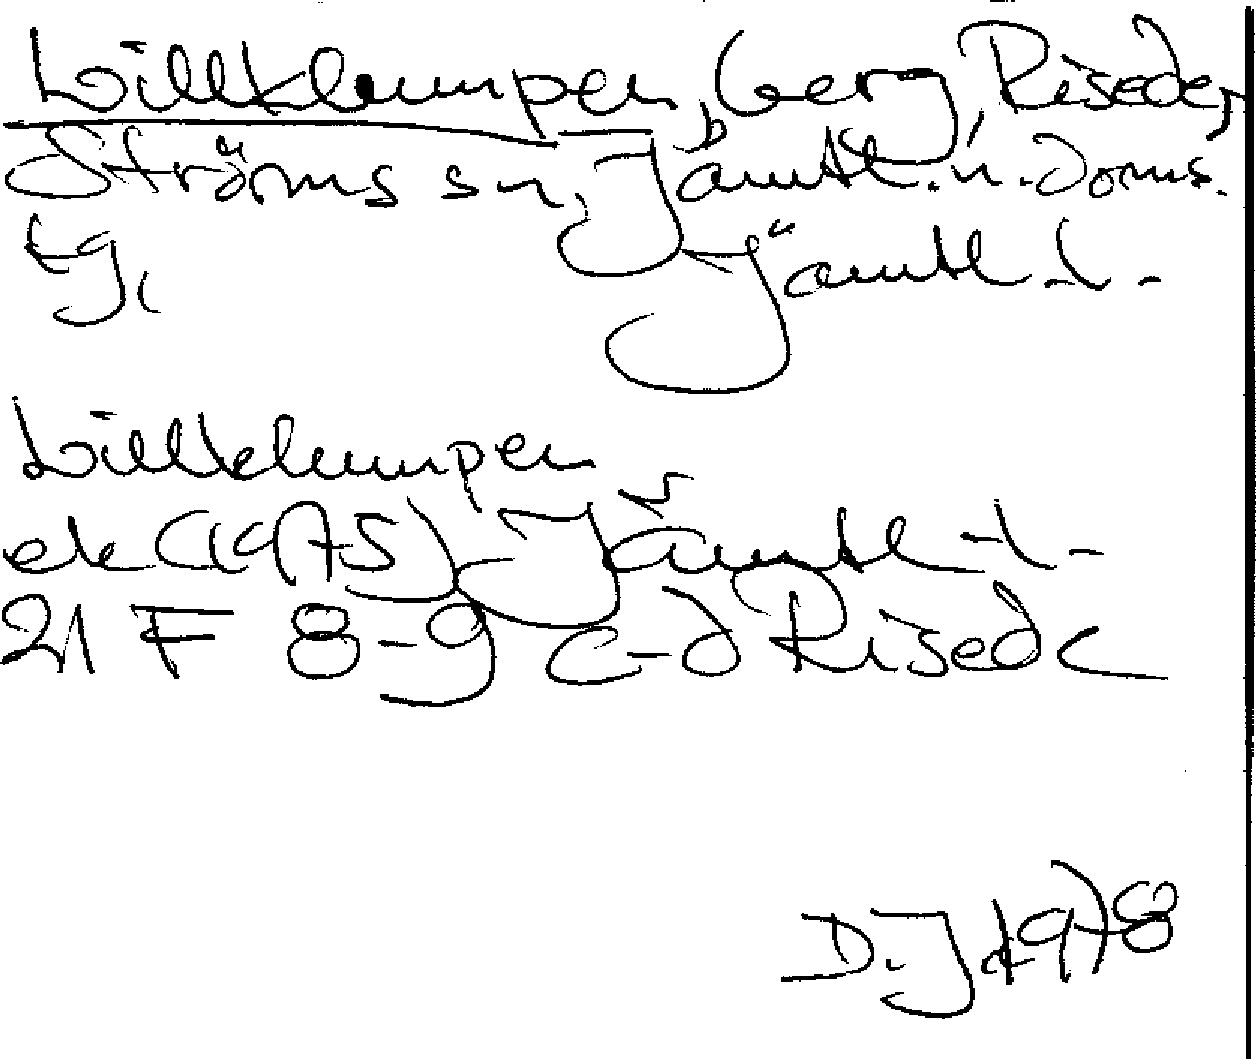 Lillklumpen, berg, Risede,
Ströms sn, Jämtl. n. doms.
tg, Jämtl. l.
Lillklumpen
ek (1975) Jämtl l.
21 F 8-9 c-d Risede
D. J 1978